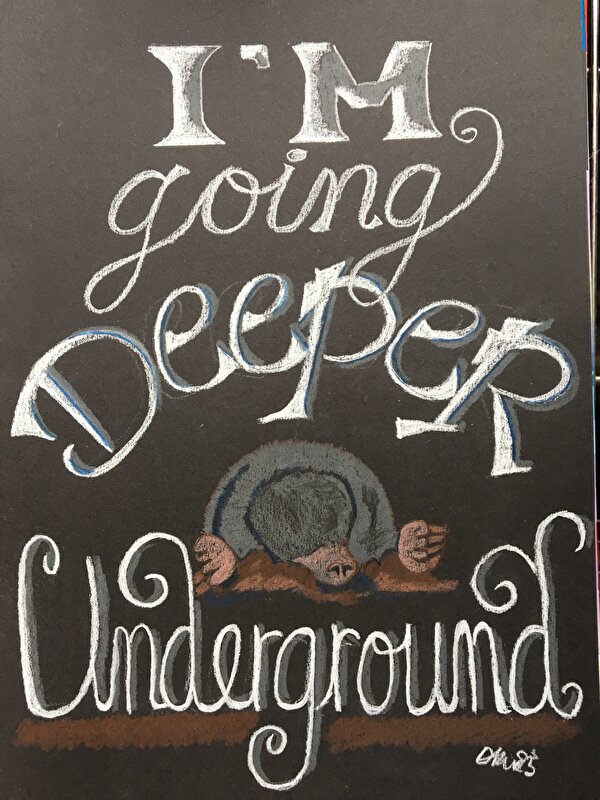 I'M
going
DeepeR
Underground